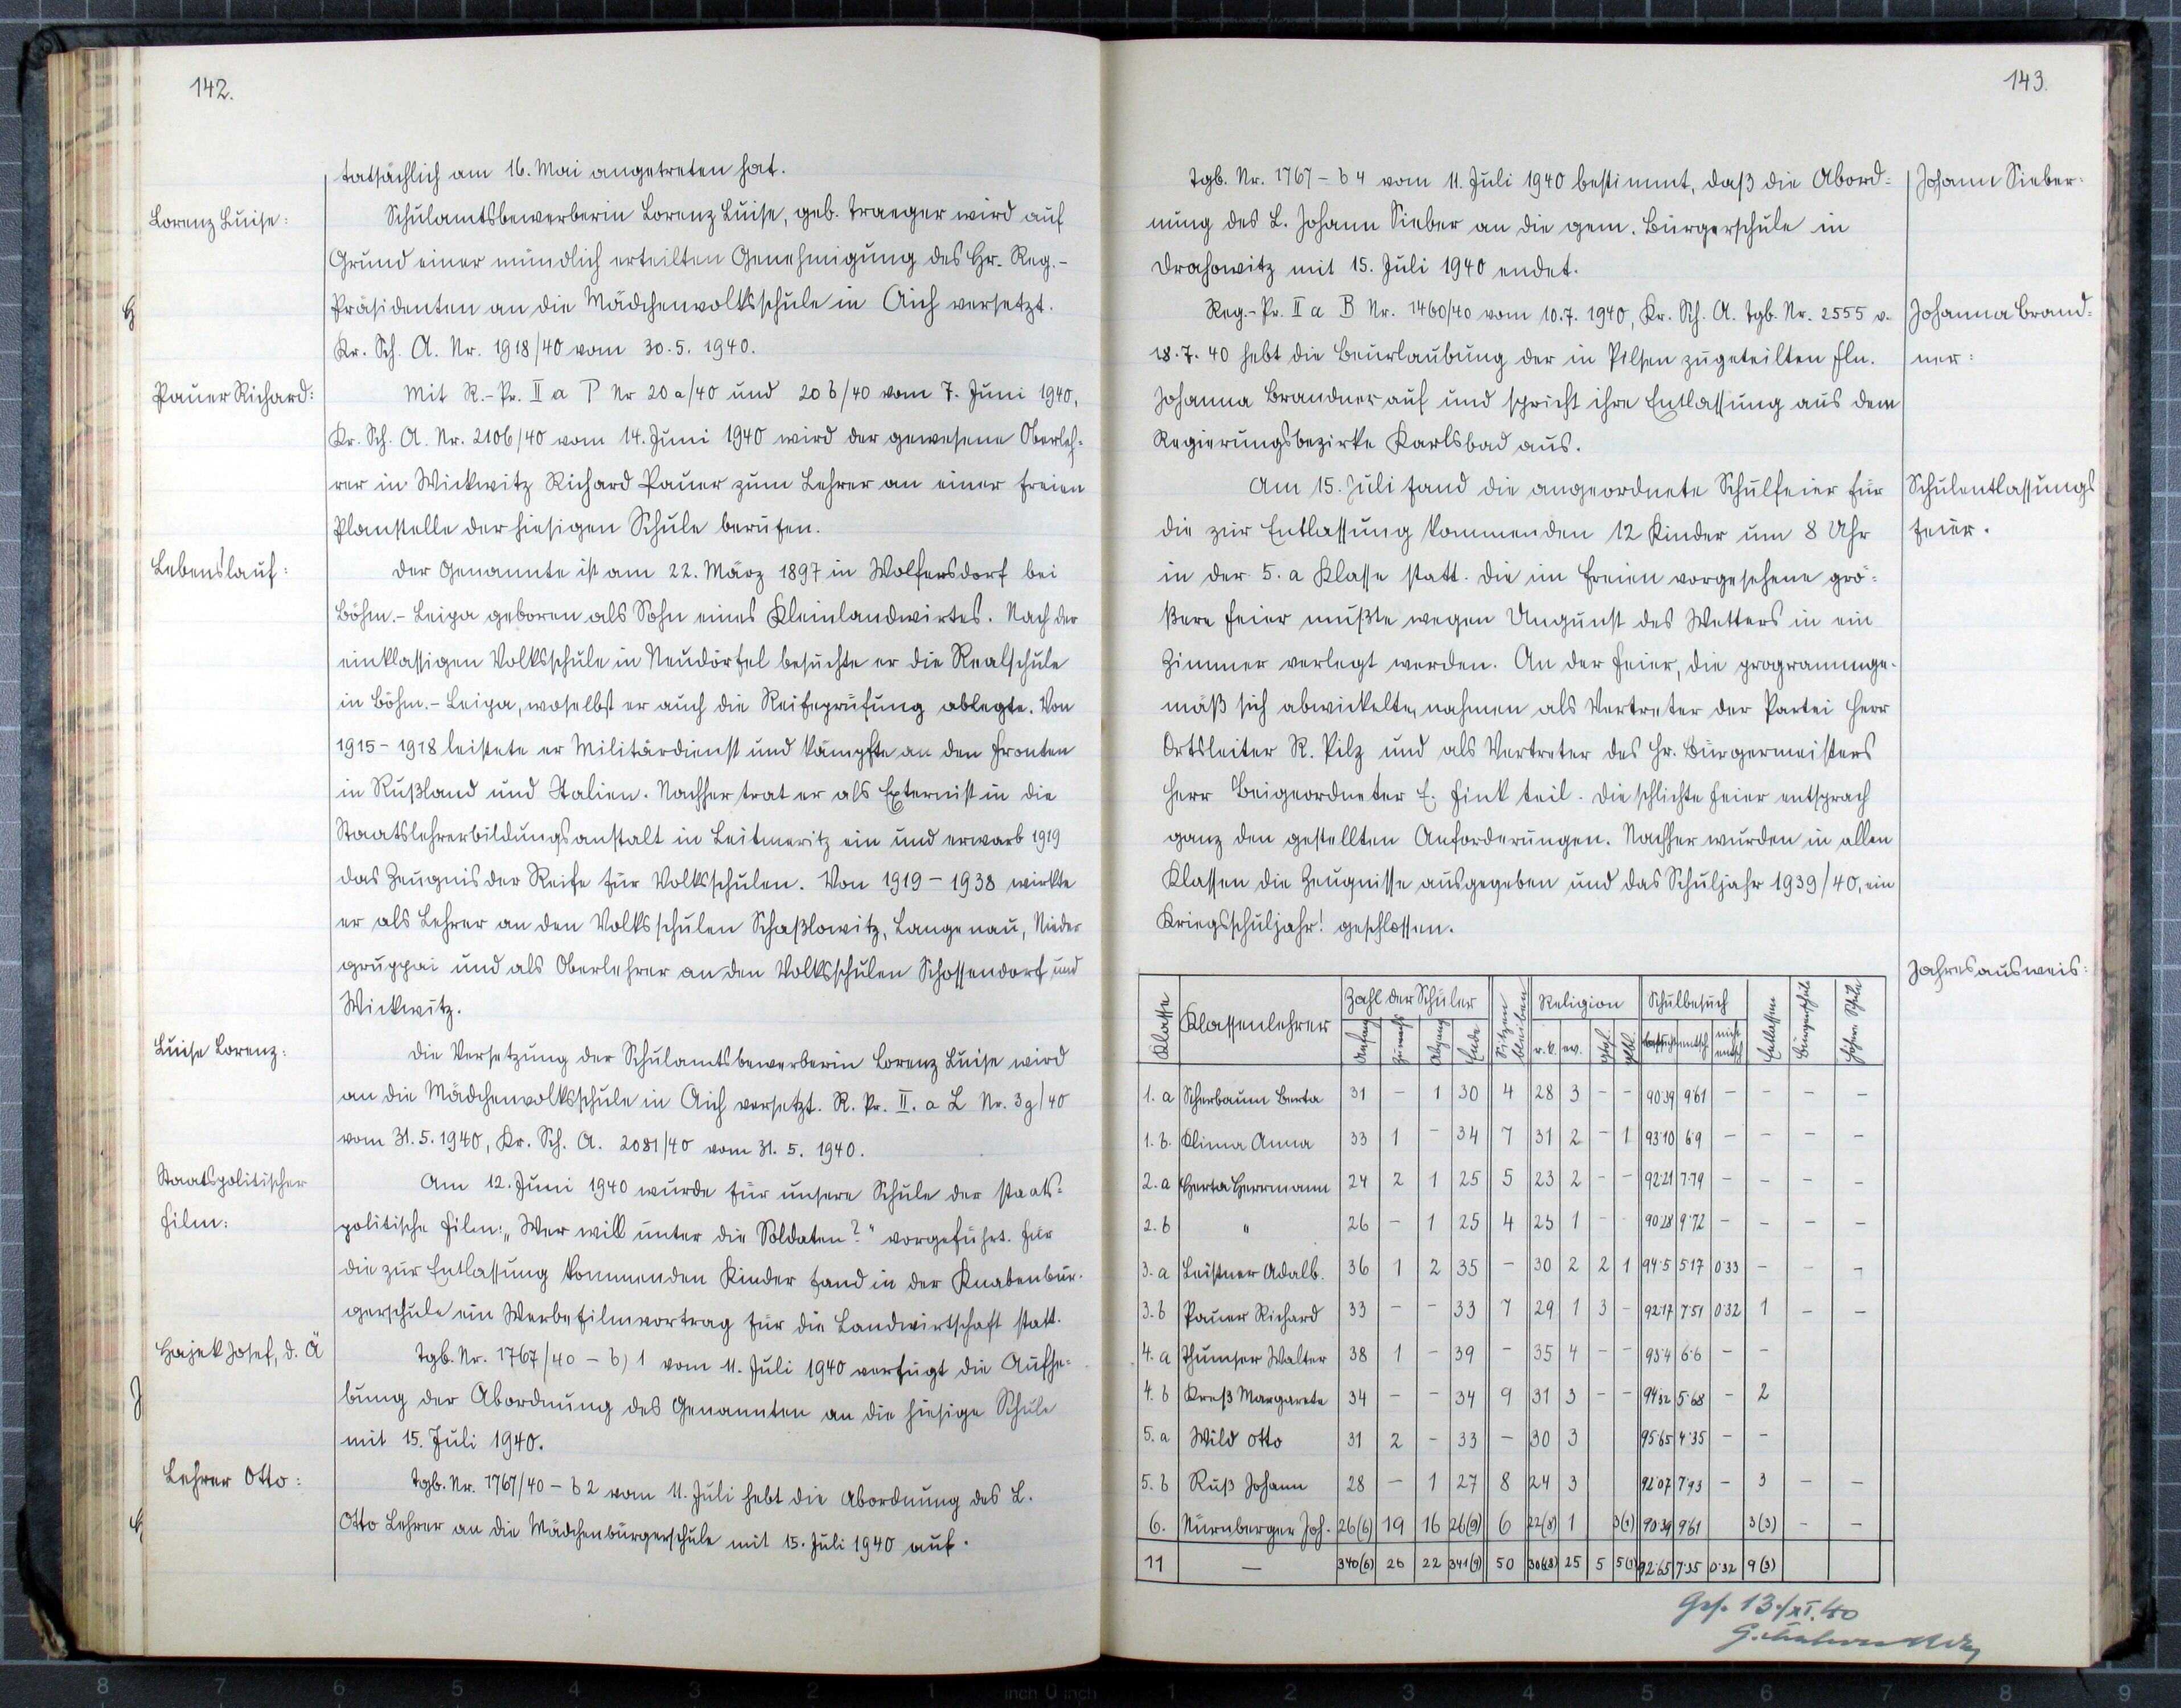 142.
tatsächlich am 16. Mai angetreten hat.
Lorenz Luise:
Schulamtsbewerberin Lorenz Luise, geb. Traeger wird auf
Grund einer mündlich erteilten Genehmigung des Hr. Reg.-
Präsidenten an die Mädchenvolksschule in Aich versetzt.
Kr. Sch. A. Nr. 1918/40 vom 30.5.1940.
Pauer Richard:
Mit R.-Pr. II a P Nr 20a/40 und 20b/40 vom 7. Juni 1940,
Kr. Sch. A. Nr. 2106/40 vom 14. Juni 1940 wird der gewesene Oberleh=
rer in Wickwitz Richard Pauer zum Lehrer an einer freien
Planstelle der hiesigen Schule berufen.
Lebenslauf:
Der Genannte ist am 22. März 1897 in Wolfersdorf bei
Böhm.-Leipa geboren als Sohn eines Kleinlandwirtes. Nach der
einklassigen Volksschule in Neudörfel besuchte er die Realschule
in Böhm.-Leipa, woselbst er auch die Reifeprüfung ablegte. Von
1915-1918 leistete er Militärdienst und kämpfte an den Fronten
in Rußland und Italien. Nachher trat er als Externist in die
Staatslehrerbildungsanstalt in Leitmeritz ein und erwarb 1919
das Zeugnis der Reife für Volksschulen. Von 1919-1938 wirkte
er als Lehrer an den Volksschulen Schaßlowitz, Langenau, Nieder
gruppai und als Oberlehrer an den Volksschulen Schossendorf und
Wickwitz.
Luise Lorenz:
Die Versetzung der Schulamtsbewerberin Lorenz Luise wird
an die Mädchenvolksschule in Aich versetzt. R. Pr. II. a L Nr. 3g/40
vom 31.5.1940, Kr. Sch. A. 2081/40 vom 31.5.1940.
Staatspolitischer
Film:
Am 12. Juni 1940 wurde für unsere Schule der staats=
politische Film: „Wer will unter die Soldaten?" vorgeführt. Für
die zur Entlassung kommenden Kinder fand in der Knabenbür-
gerschule ein Werbefilmvortrag für die Landwirtschaft statt.
Hajek Josef, d. Ä
Tgb. Nr. 1767/40 - b) 1 vom 11. Juli 1940 verfügt die Aufhe=
bung der Abordnung des Genannten an die hiesige Schule
mit 15. Juli 1940.
Lehrer Otto:
Tgb. Nr. 1767/40 - b 2 vom 11. Juli hebt die Abordnung des L.
Otto Lehrer an die Mädchenbürgerschule mit 15. Juli 1940 auf.
143.
Tgb. Nr. 1767 - b 4 vom 11. Juli 1940 bestimmt, daß die Abord=
nung des L. Johann Sieber an die gem. Bürgerschule in
Drahowitz mit 15. Juli 1940 endet.
Johann Sieber:
Reg.-Pr. II a B Nr. 1460/40 vom 10.7.1940, Kr. Sch. A. Tgb. Nr. 2555 v.
18.7.40 hebt die Beurlaubung der in Pilsen zugeteilten Fln.
Johanna Brandner auf und spricht ihre Entlassung aus dem
Regierungsbezirke Karlsbad aus.
Johanna Brand=
ner:
Am 15. Juli fand die angeordnete Schulfeier für
die zur Entlassung kommenden 12 Kinder um 8 Uhr
in der 5. a Klasse statt. Die im Freien vorgesehene grö=
ßere Feier mußte wegen Ungunst des Wetters in ein
Zimmer verlegt werden. An der Feier, die programmge-
mäß sich abwickelte, nahmen als Vertreter der Partei Herr
Ortsleiter R. Pilz und als Vertreter des Hr. Bürgermeisters
Herr Beigeordneter E. Fink teil. Die schlichte Feier entsprach
ganz den gestellten Anforderungen. Nachher wurden in allen
Klassen die Zeugnisse ausgegeben und das Schuljahr 1939/40, ein
Kriegsschuljahr! geschlossen.
Schulentlassungs
feier.
Jahresausweis:
Klasse Klassenlehrer Zahl der Schüler Sitzen bleiben Religion Schulbesuch Entlassen Bürgerschule höhere Schule
Anfang Zuwachs Abgang Ende r.k. ev. entsch nicht entsch
1. a Scherbaum Berta 31 - 1 30 4 28 3 - - 90·39 9·61 - - - -
1. b. Klima Anna 33 1 - 34 7 31 2 - 1 93·10 6·9 - - - -
2. a Herta Herrmann 24 2 1 25 5 23 2 - - 92·21 7·79 - - - -
2. b " 26 - 1 25 4 23 1 - - 90·28 9·72 - - - -
3. a Leistner Adalb. 36 1 2 35 - 30 2 2 1 94·5 5·17 0·33 - - -
3. b Pauer Richard 33 - - 33 7 29 1 3 - 92·17 7·51 0·32 1 - -
4. a Thumser Walter 38 1 - 39 - 35 4 - - 93·4 6·6 - -
4. b Kreß Margarete 34 - - 34 9 31 3 - - 94·32 5·68 - 2
5. a Wild Otto 31 2 - 33 - 30 3 95·65 4·35 - -
5. b Ruß Johann 28 - 1 27 8 24 3 92·07 7·93 - 3 - -
6. Nürnberger Joh. 26(6) 19 16 26(9) 6 22(8) 1 3(1) 90·39 9·61 3(3) - -
11 — 340(6) 26 22 341(9) 50 306(8) 25 5 5(1) 92·65 7·35 0·32 9(3)
Ges. 13./XI.40
inch 0 inch
8 7 6 5 4 3 2 1 1 2 3 4 5 6 7 8 9